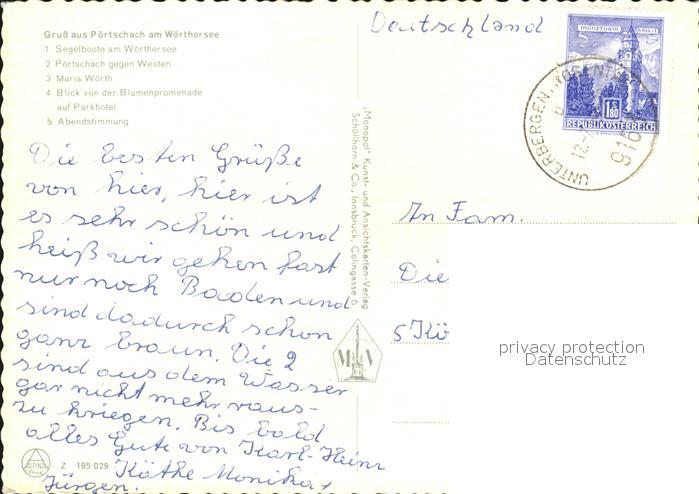 Gruß aus Pörtschach am Wörthersee
1 Segelboote am Wörthersee
2 Pörtschach gegen Westen
3 Maria Wörth
4 Blick von der Blumenpromenade
auf Parkhotel
5 Abendstimmung
Die besten Grüße
von hier, hier ist
es sehr schön und
heiß wir gehen fast
nur noch Baden und
sind dadurch schon
ganz braun. Die 2
sind aus dem Wasser
gar nicht mehr raus-
zu kriegen. Bis bald
alles Gute von Karl-Heinz
Käthe Monika
Jürgen.
Z 195 029
„Monopol" Kunst- und Ansichtskarten-Verlag
Schöllhorn & Co., Innsbruck, Colingasse 6
M V
Deutschland
MÜNZTURM HALL I.T.
S 1.80
REPUBLIK ÖSTERREICH
UNTERBERGEN, ROSENTAL
An Fam.
Die
5 Kö
privacy protection
Datenschutz